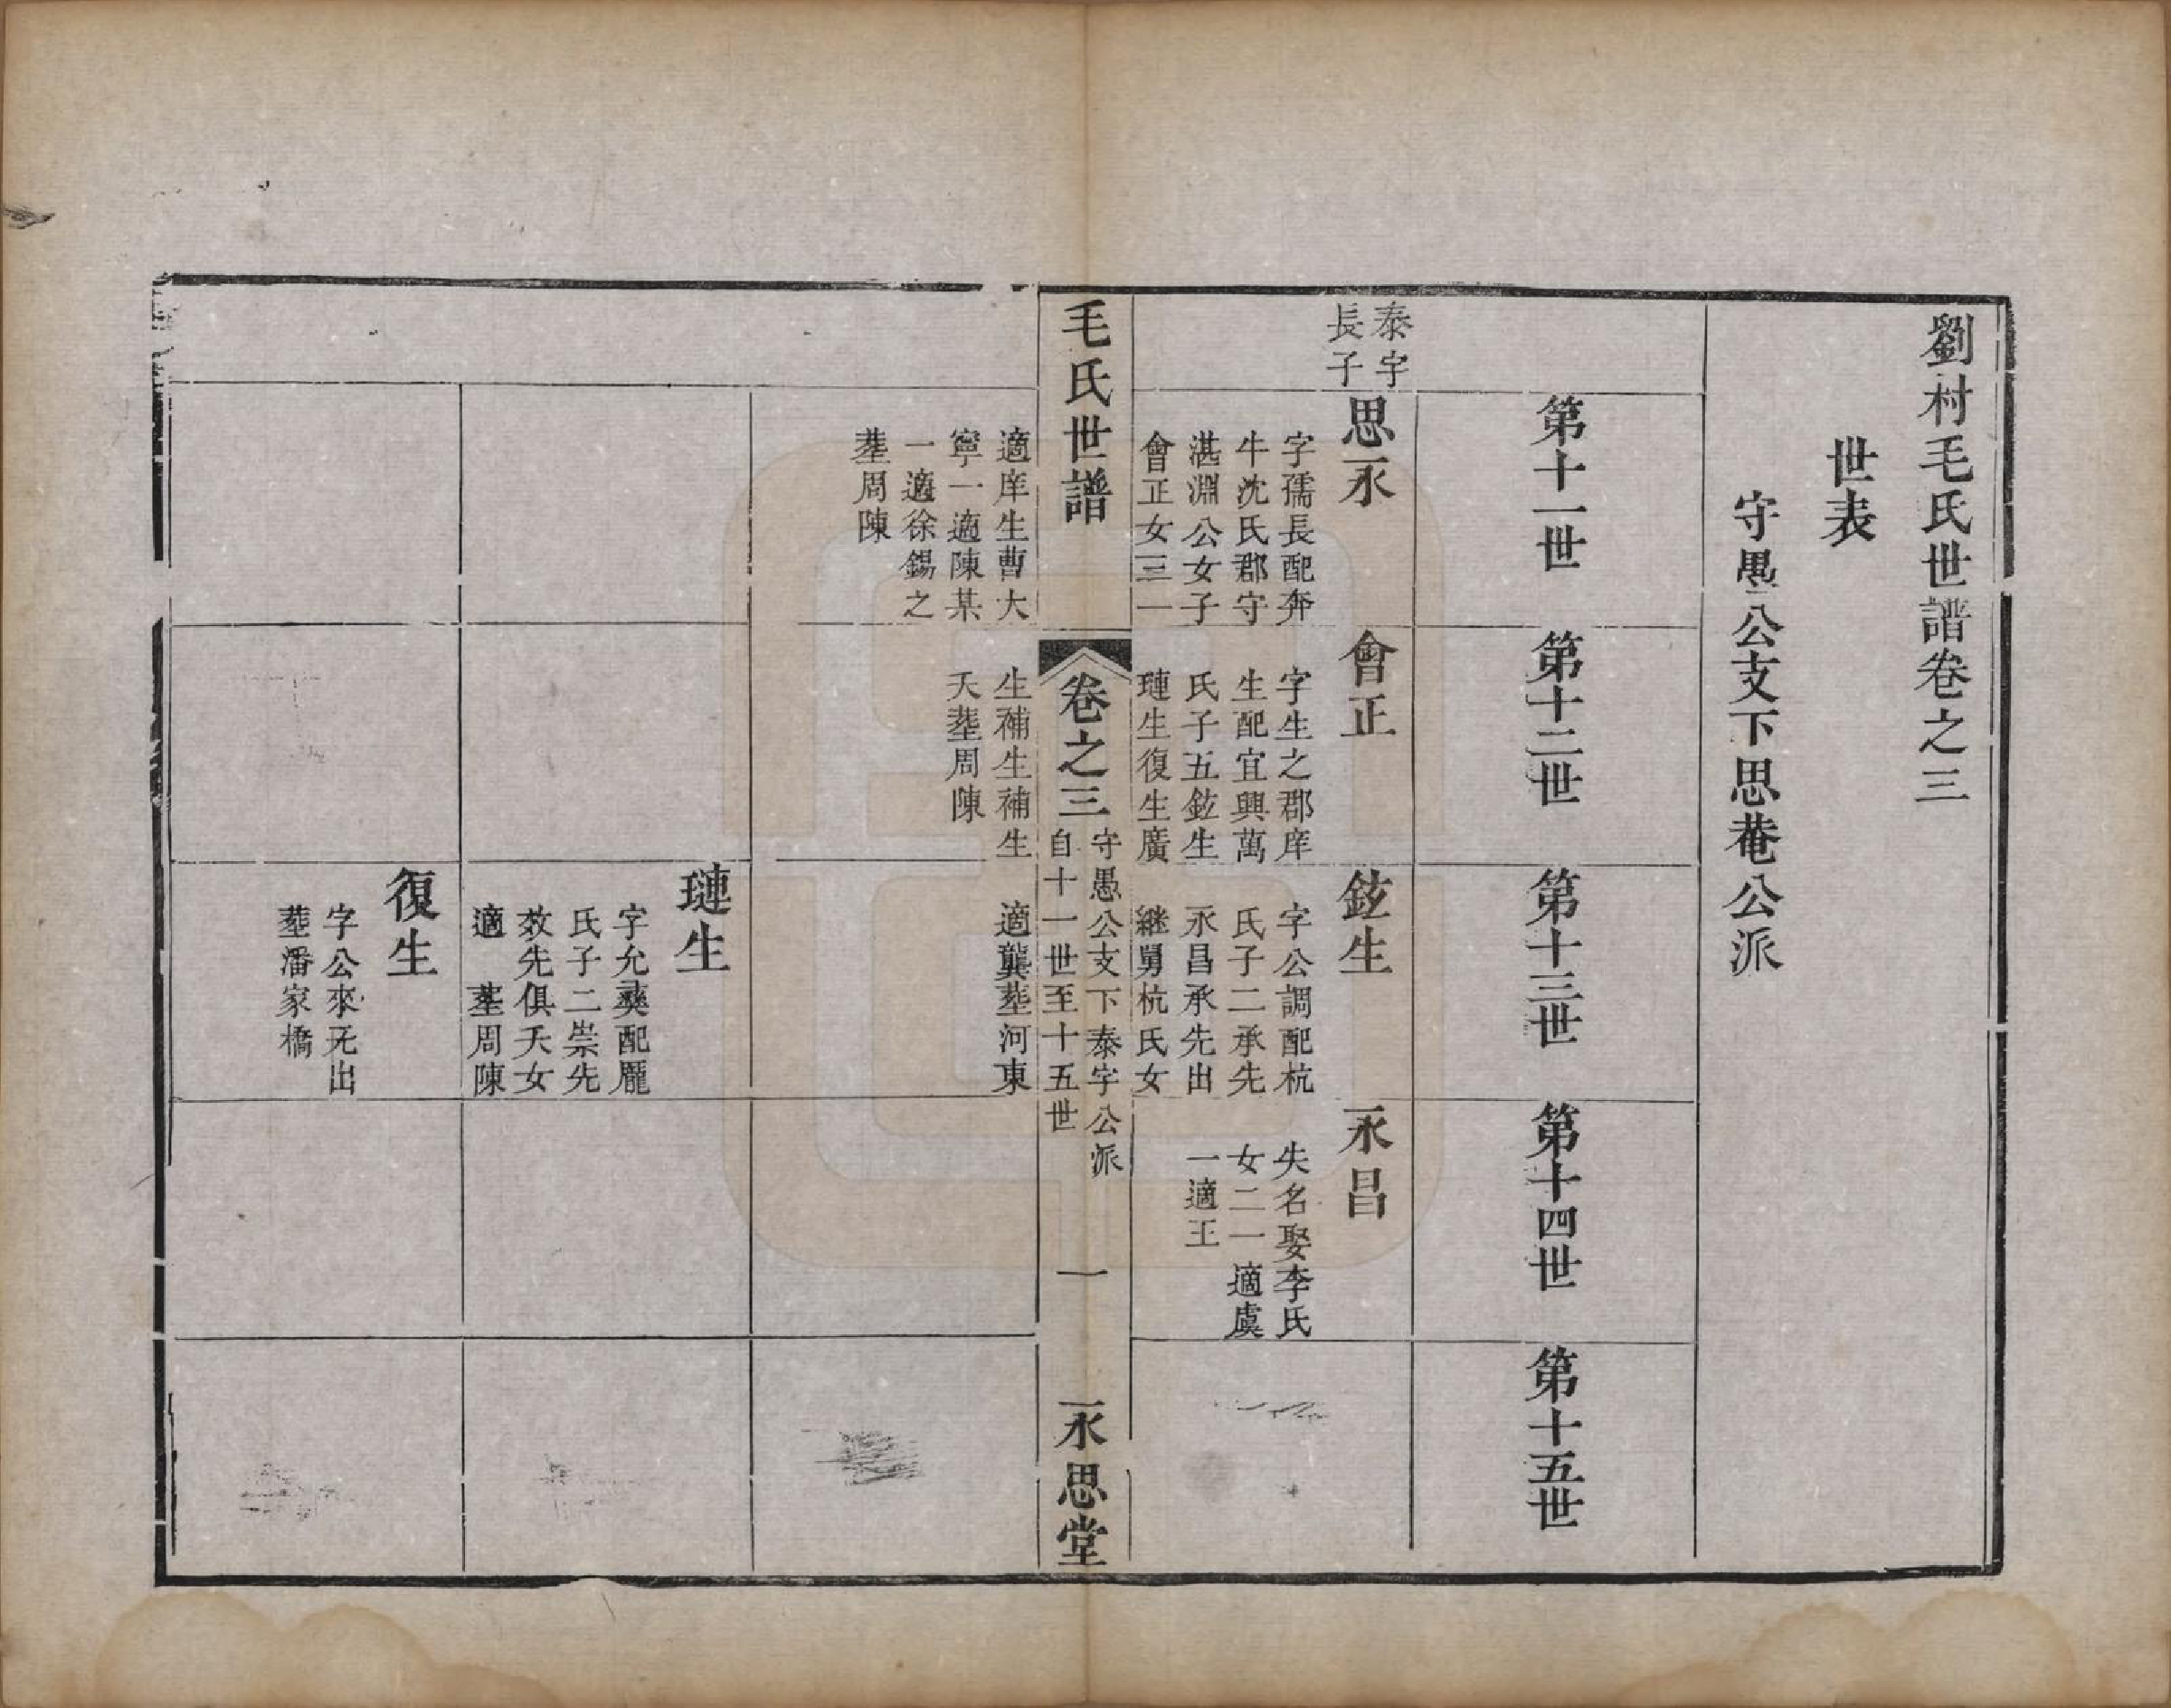 劉村毛氏世譜卷之三
世表
守愚公支下思菴公派
第十一世
第十二世
第十三世
第十四世
第十五世
泰宇
長子
思永
字孺長配奔
牛沈氏郡守
湛淵公女子
會正女三一
適庠生曹大
寧一適陳某
一適徐錫之
塟周陳
會正
字生之郡庠
生配宜興萬
氏子五鉉生
璉生復生廣
生補生補生
夭塟周陳
鉉生
字公調配杭
氏子二承先
永昌承先出
継舅杭氏女
適龔塟河東
永昌
失名娶李氏
女二一適虞
一適王
毛氏世譜
卷之三
守愚公支下泰宇公派
自十一世至十五世
一
永思堂
璉生
字允彝配龐
氏子二崇先
效先俱夭女
適 塟周陳
復生
字公來无出
塟潘家橋